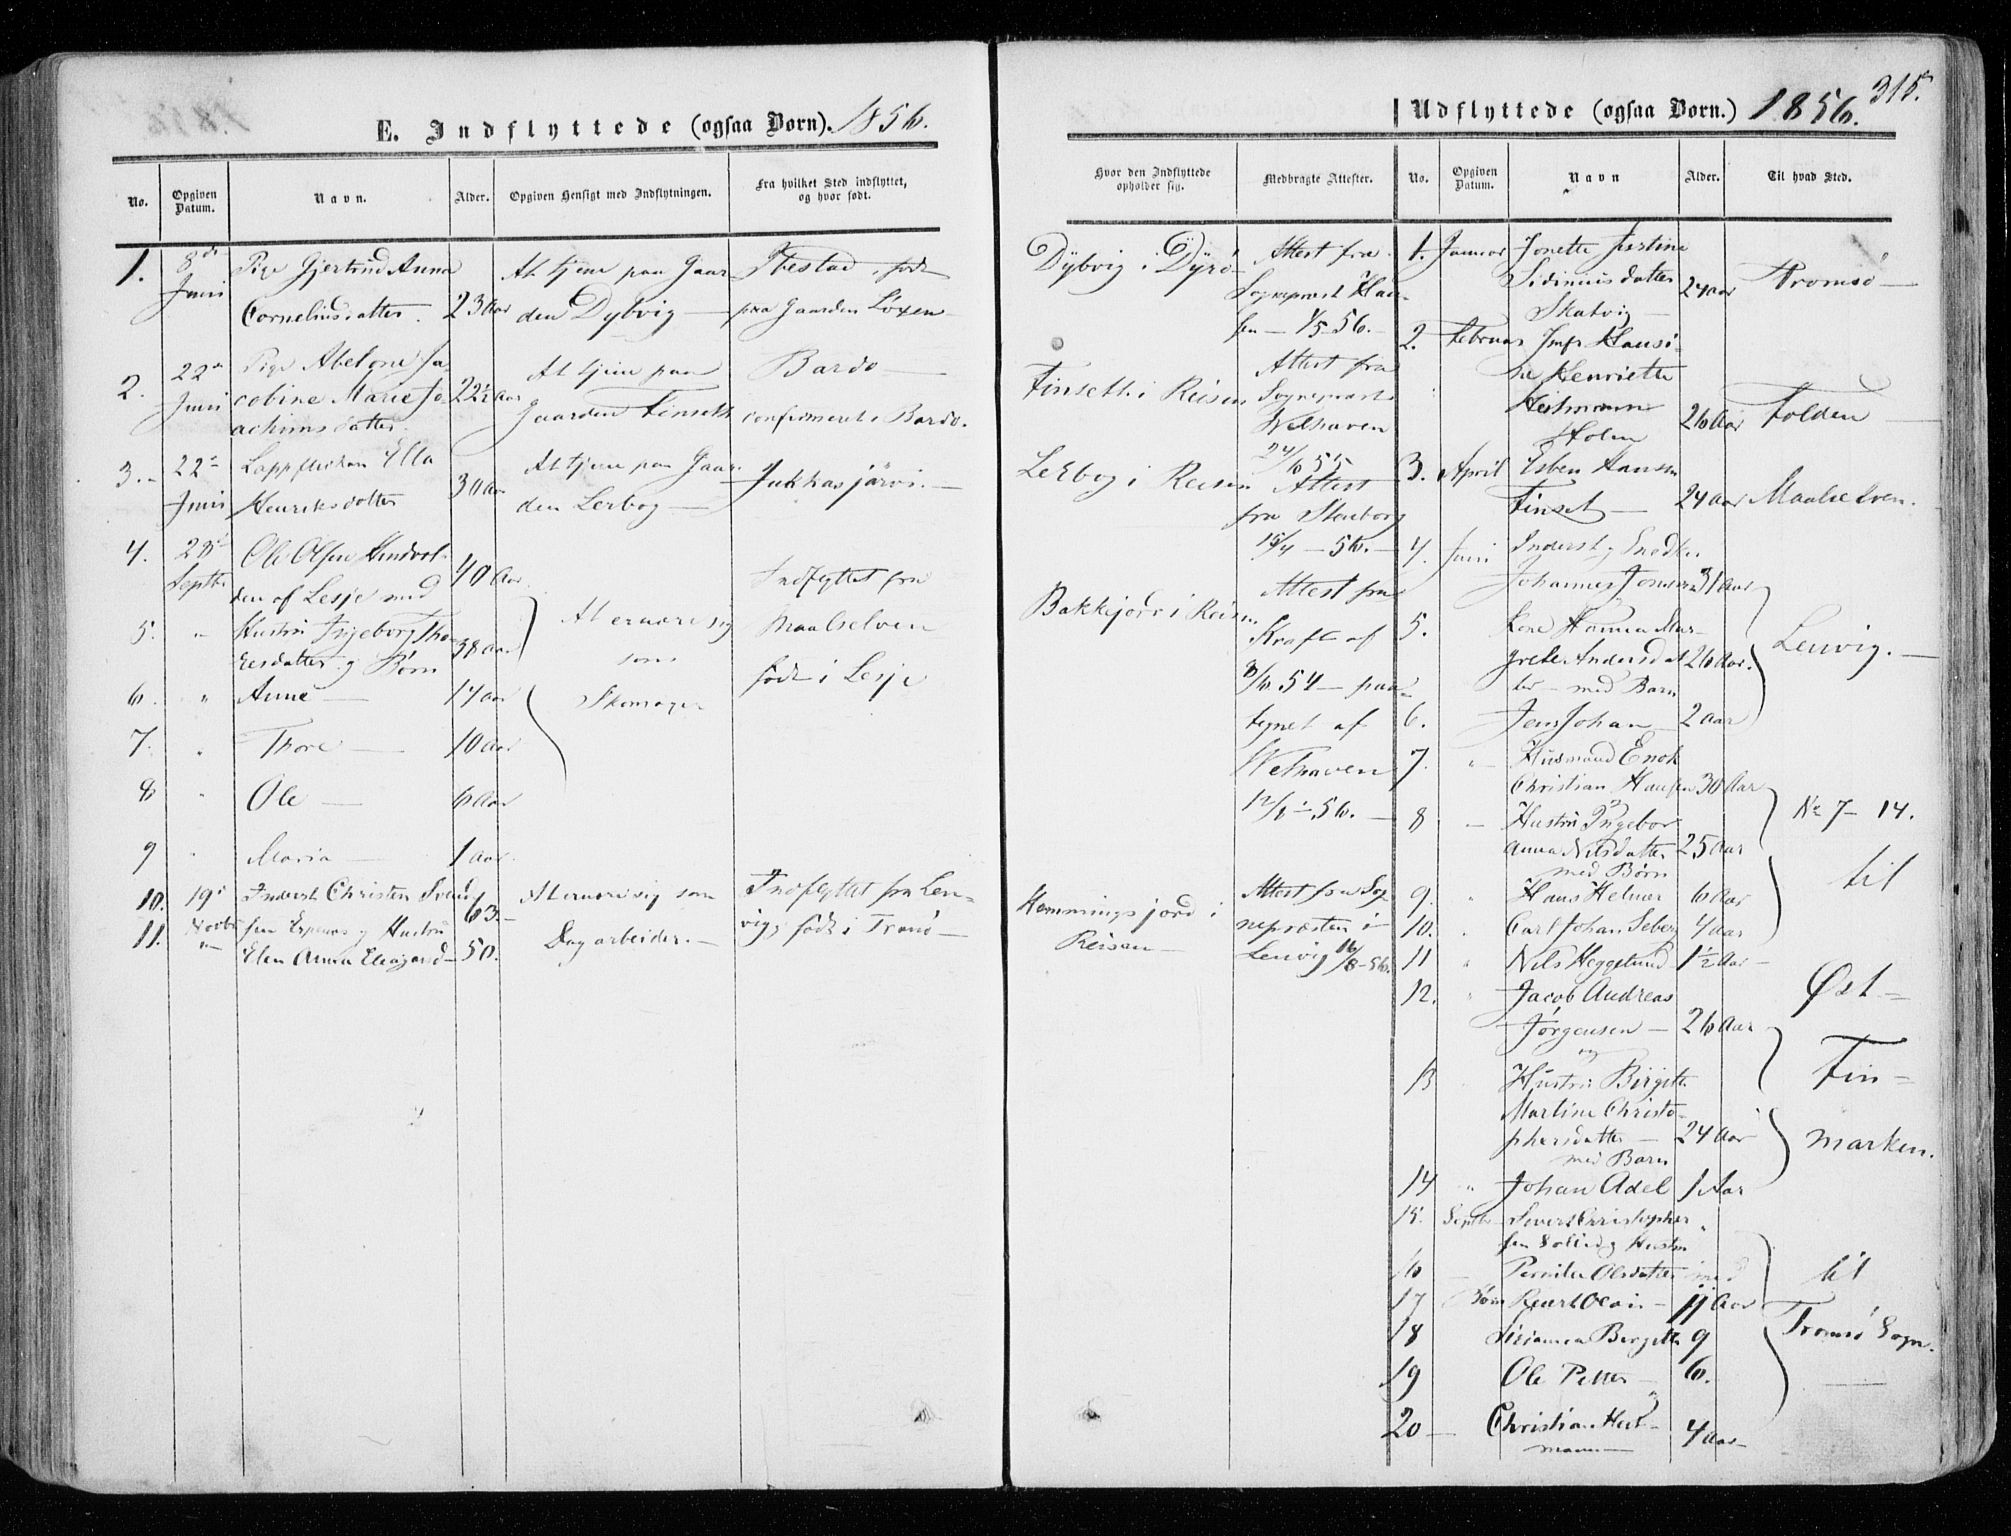 E. Indflyttede (ogsaa Børn). 1856.
No.
Opgiven Datum.
Navn.
Alder.
Opgiven Hensigt med Indflytningen.
Fra hvilket Sted indflyttet, og hvor født.
1. 8de Pige Gjertrud Anna At tjene paa Gaar Ibestad, født
Juni Cornelius datter. 23 Aar den Dybvig — paa Gaarden Löxen
2. 22de Pige Abelone Ja At tjene paa Bardo —
Juni cobine Marie Jo 22½ Aar Gaarden Finseth confirmeret i Bardo.
achims datter.
3. 22de Lappepiken Ella At tjene paa Gaar Jukkasjärvi. —
Juni Henriksdatter 30 Aar den Lerbog —
4. 28de Ole Olsen
Septbr. den af Lesje med 40 Aar Indflyttet fra
5. " Hustru Ingeborg Tho At ernære sig Maalselven
resdatter og Børn 38 Aar som født i Lesje
6. " Anne — 14 Aar Skomager
7. " Thore — 10 Aar
8 " Ole — 6 Aar
9 " Maria — 1 Aar.
10. 19de Inderst Christen Svend 63 At ernære sig som Indflyttet fra Len-
11. Novbr. sen Espenes og Hustru Dagarbeider. — vig, født i Tranø —
" Elen Anna Eleazard — 50.
315.
Udflyttede (ogsaa Børn.) 1856.
Hvor den Indflyttede opholder sig.
Medbragte Attester.
No.
Opgiven Datum.
Navn
Alder.
Til hvad Sted.
Dybvig i Dyrö Attest fra
Sogneprest Han-
sen — 1/5 56. —
Finseth i Reisen Attest fra
Sogneprest
Welhaven
24/6 55
LeErbog i Reisen Attest
fra Stenborg
15/4 — 56. —
Bakkejord i Reisen Attest fra
Kraft af
8/6. 54 — paa-
tegnet af
Welhaven
12/6 — 56. —
Hemmingsjord i Attest fra Sog
Reisen — nepræsten i
Lenvig 16/8 — 56.
1. Januar Jonette Justine
Sidiniusdatter 24 aar Tromsö —
Skatvig —
2. Februar Jmfr Hansi-
ne Henriette
Heitmann 26 Aar Folden —
Holm
3. April Esben Hansen
Finset — 24 aar Maalselven.
4. Juni Inderst og Snedker
Johannes Jonsen 31 Aar
5. Kone Hanna Mar-
grete Andersdat 26 Aar. Lenvig. —
ter — med Barn
6. Jens Johan — 2 aar
7. " Husmand Enok
Christian Hansen 30 Aar
8 — Hustru Ingebor No 7 — 14.
Anna Nilsdatter 25 aar
med Børn til
9. " Hans Helmer 6 Aar
10. " Carl Johan Seberg 4 aar
11 " Nils Heggelund 1½ Aar —
12. " Jacob Andreas Øst-
Jörgensen — 26 Aar
og
13 Hustru Birgitte Fin-
Martine Christo-
phersdatter — 24 Aar marken.
med Barn
14 " Johan Adel 1 Aar
15. Septbr. Sivert Christopher
sen Solli og Hustru
16 — Pernille Olsdatter med til
17 Børn Reiert Olais — 11 Aar
18 Birgitte 9 Tromsö Sogn.
19 Ole Petter — 6. —
20 — Christian Heit-
mann — 4 Aar —